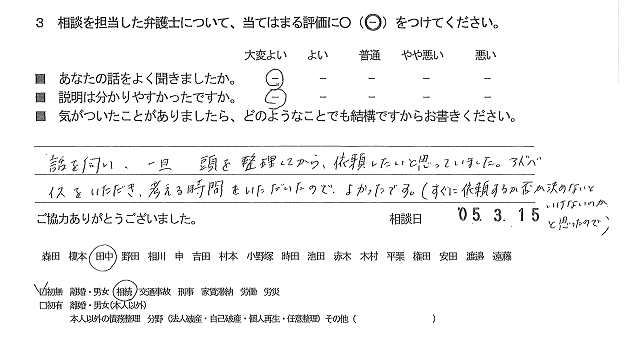 3 相談を担当した弁護士について、当てはまる評価に○(㊀)をつけてください。
大変よい よい 普通 やや悪い 悪い
■ あなたの話をよく聞きましたか。 − − − − −
■ 説明は分かりやすかったですか。 − − − − −
■ 気がついたことがありましたら、どのようなことでも結構ですからお書きください。
話を伺い、一旦 頭を整理してから、依頼したいと思っていました。アドバ
イスをいただき、考える時間をいただいたので、よかったです。(すぐに依頼するか否か決めないと
いけないのか
と思ったので)
ご協力ありがとうございました。 相談日 '05. 3. 15
森田 榎本 田中 野田 相川 申 吉田 村本 小野塚 時田 池田 赤木 木村 平栗 権田 安田 渡邉 遠藤
□初無 離婚・男女 相続 交通事故 刑事 家賃滞納 労働 労災
□初有 離婚・男女(本人以外)
本人以外の債務整理 分野(法人破産・自己破産・個人再生・任意整理)その他( )